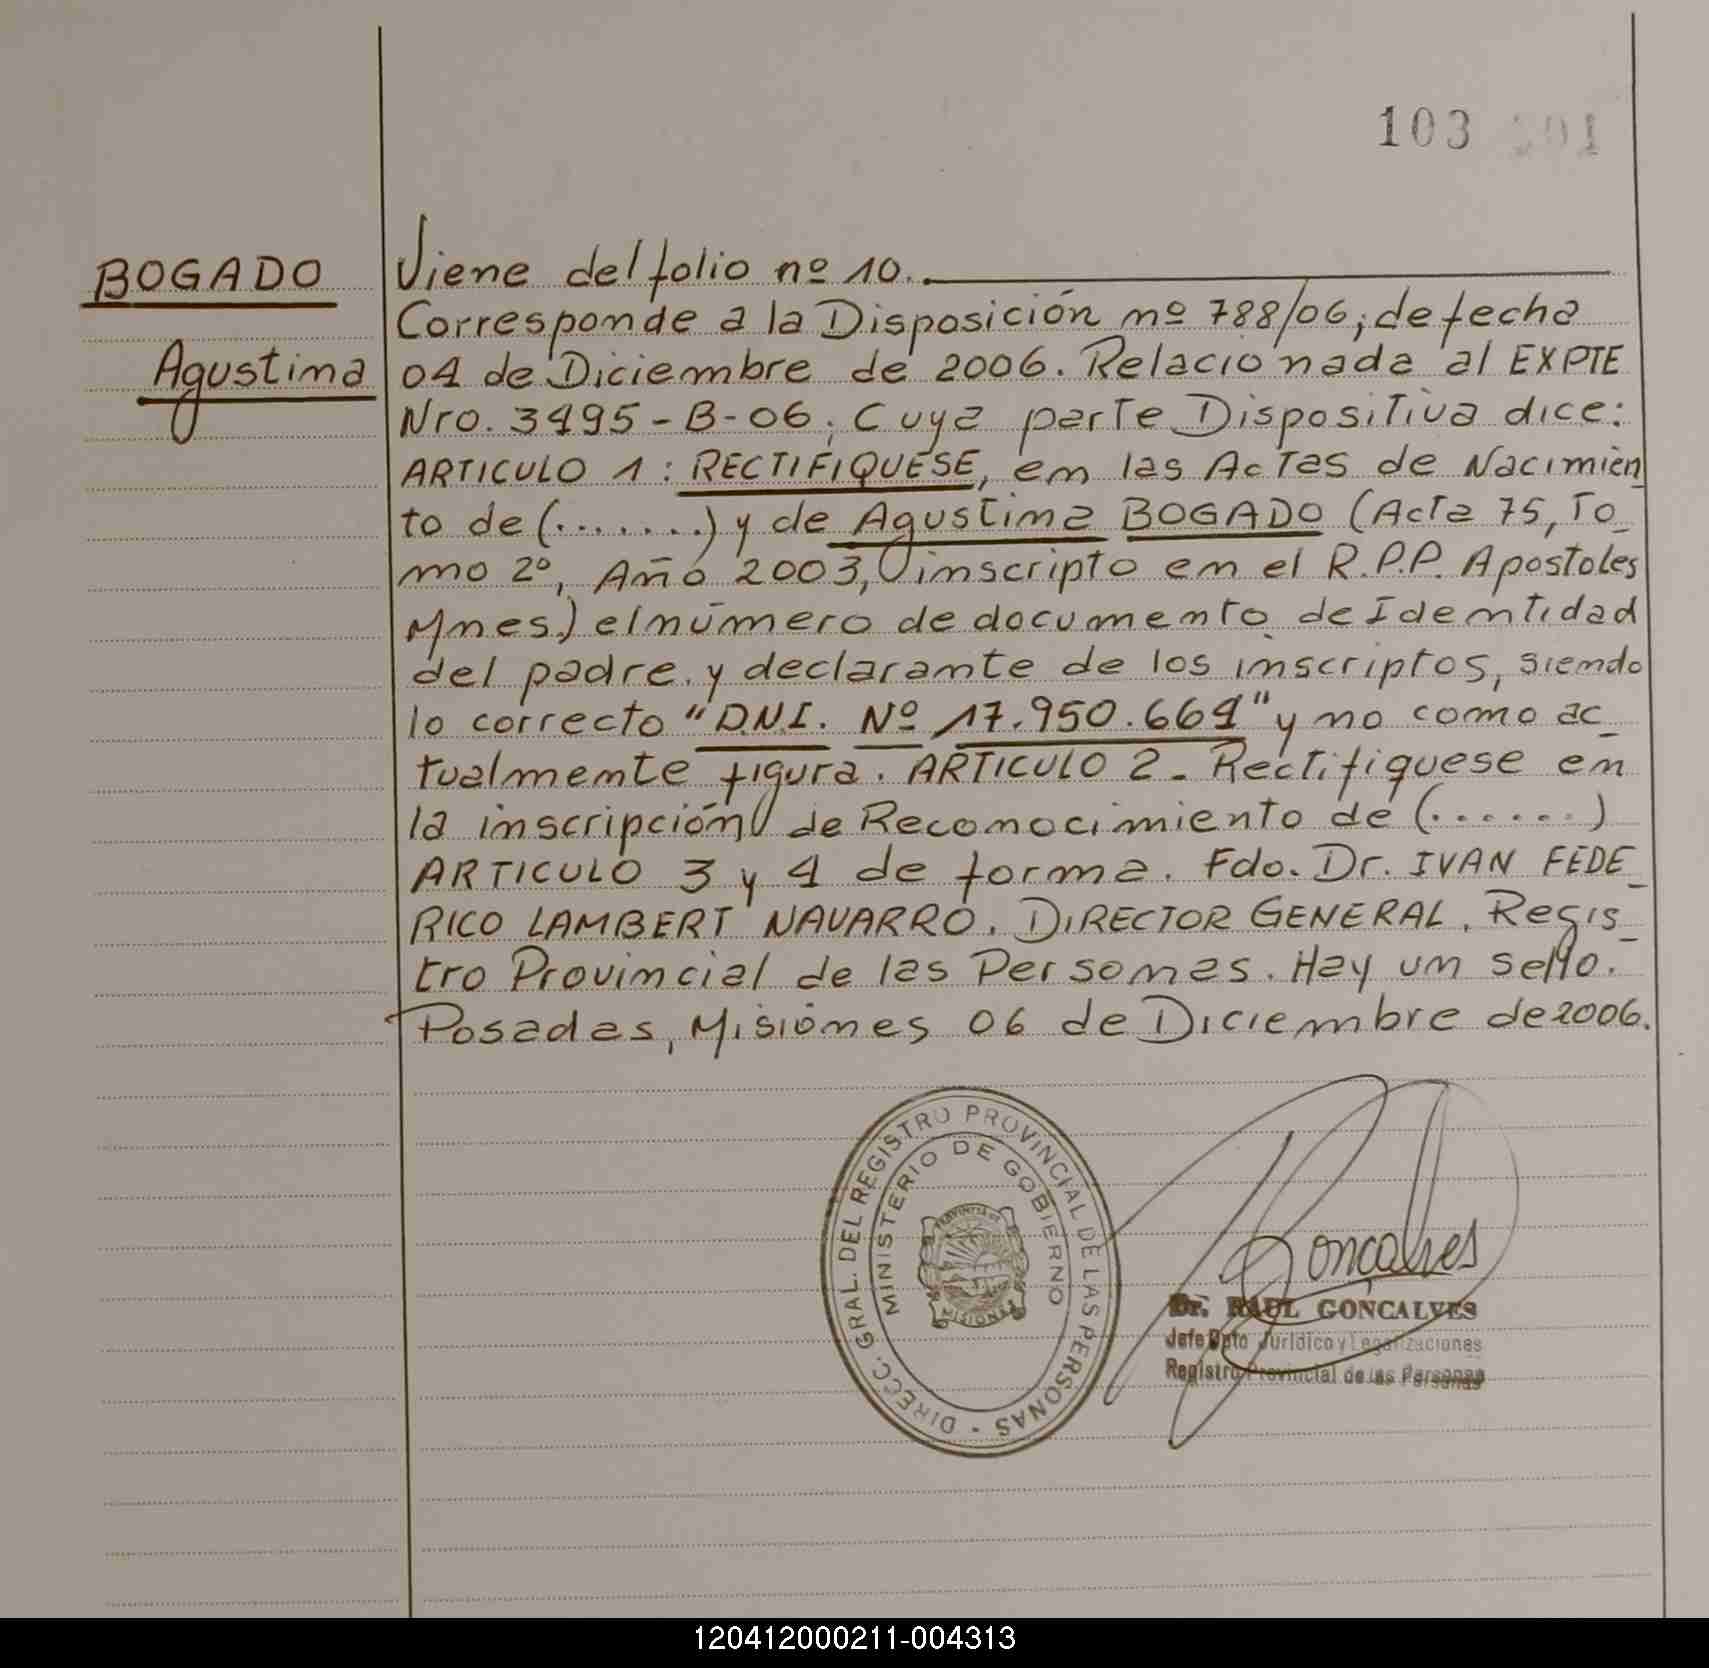 103 201
BOGADO
Agustina
Viene del folio nº 10.
Corresponde a la Disposición nº 788/06, de fecha
04 de Diciembre de 2006. Relacionada al EXPTE
Nro. 3495-B-06, Cuya parte Dispositiva dice:
ARTICULO 1: RECTIFIQUESE, en las Actas de Nacimien
to de (.......) y de Agustina BOGADO (Acta 75, To_
mo 2º, Año 2003, inscripto en el R.P.P. Apostoles
Mnes.) el número de documento de Identidad
del padre y declarante de los inscriptos, siendo
lo correcto "D.N.I. Nº 17.950.664" y no como ac_
tualmente figura. ARTICULO 2_ Rectifiquese en
la inscripción de Reconocimiento de (......)
ARTICULO 3 y 4 de forma. Fdo. Dr. IVAN FEDE_
RICO LAMBERT NAVARRO. DIRECTOR GENERAL. Regis_
tro Provincial de las Personas. Hay un sello.-
Posadas, Misiones 06 de Diciembre de 2006.
DIRECC. GRAL. DEL REGISTRO PROVINCIAL DE LAS PERSONAS -
MINISTERIO DE GOBIERNO
PROVINCIA DE
MISIONES
Goncalves
Dr. RAUL GONÇALVES
Jefe Dpto Jurídico y Legalizaciones
Registro Provincial de las Personas
120412000211-004313